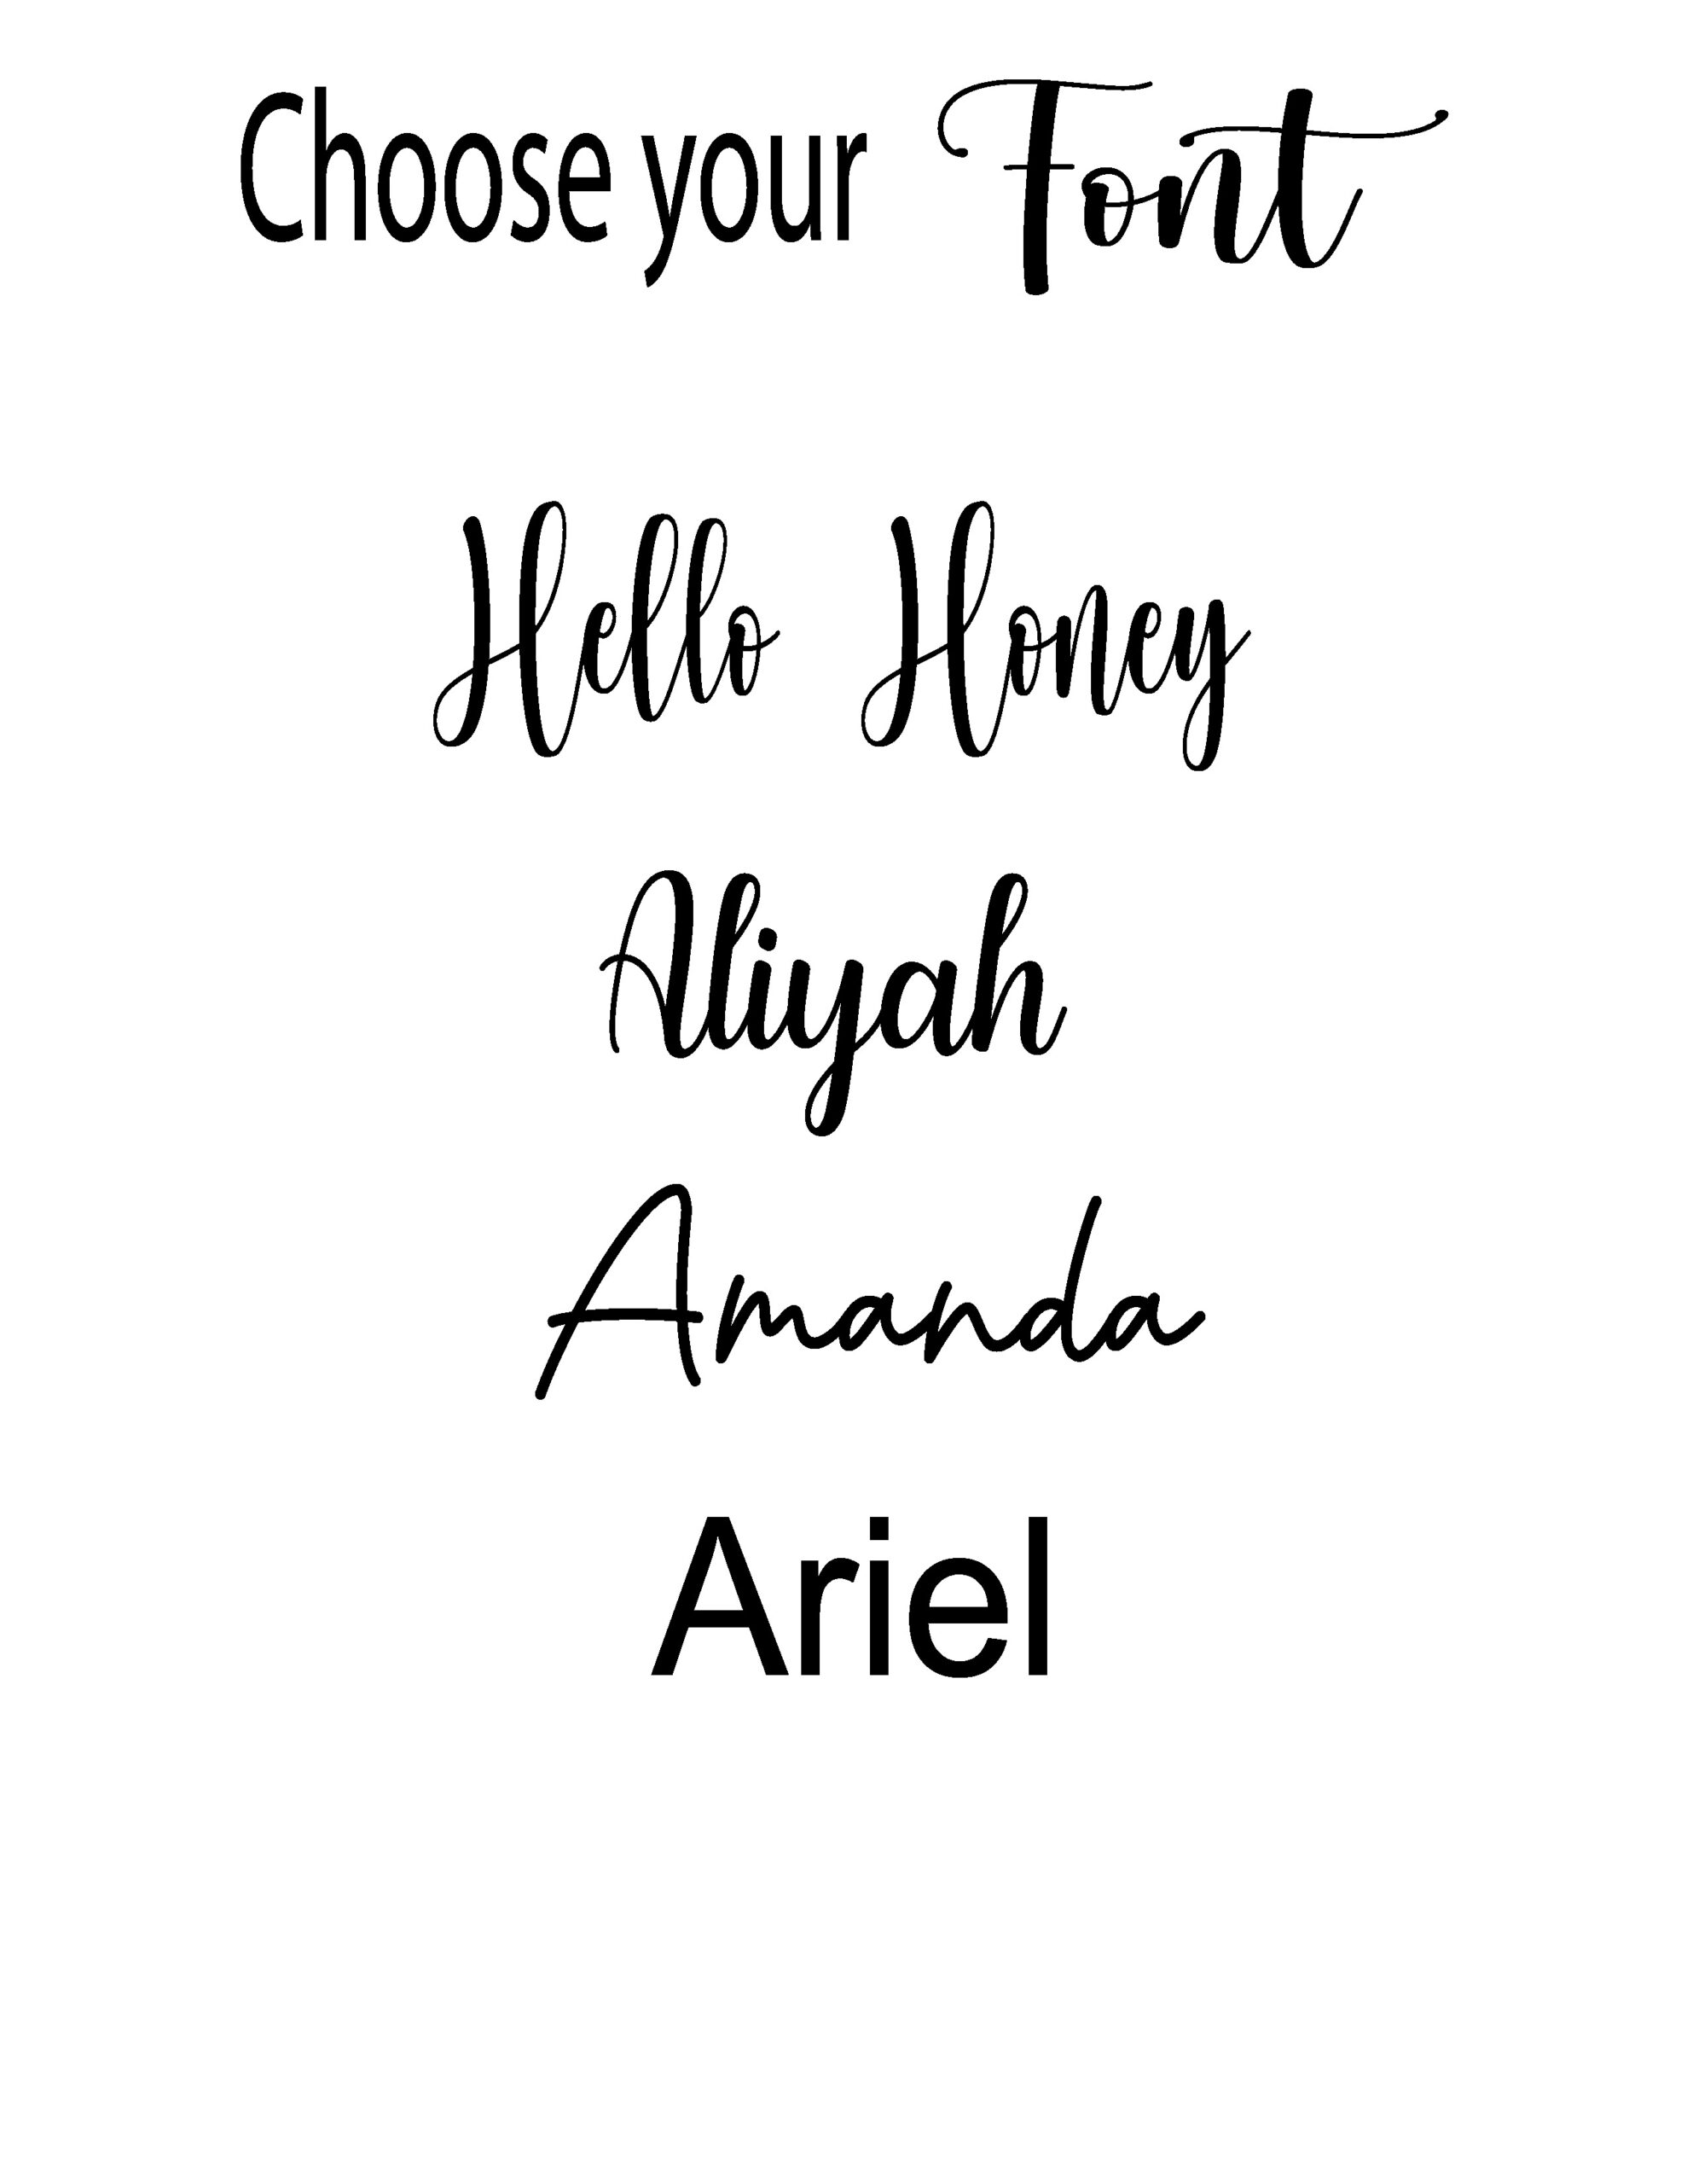 Choose your Font
Hello Honey
Aliyah
Amanda
Ariel